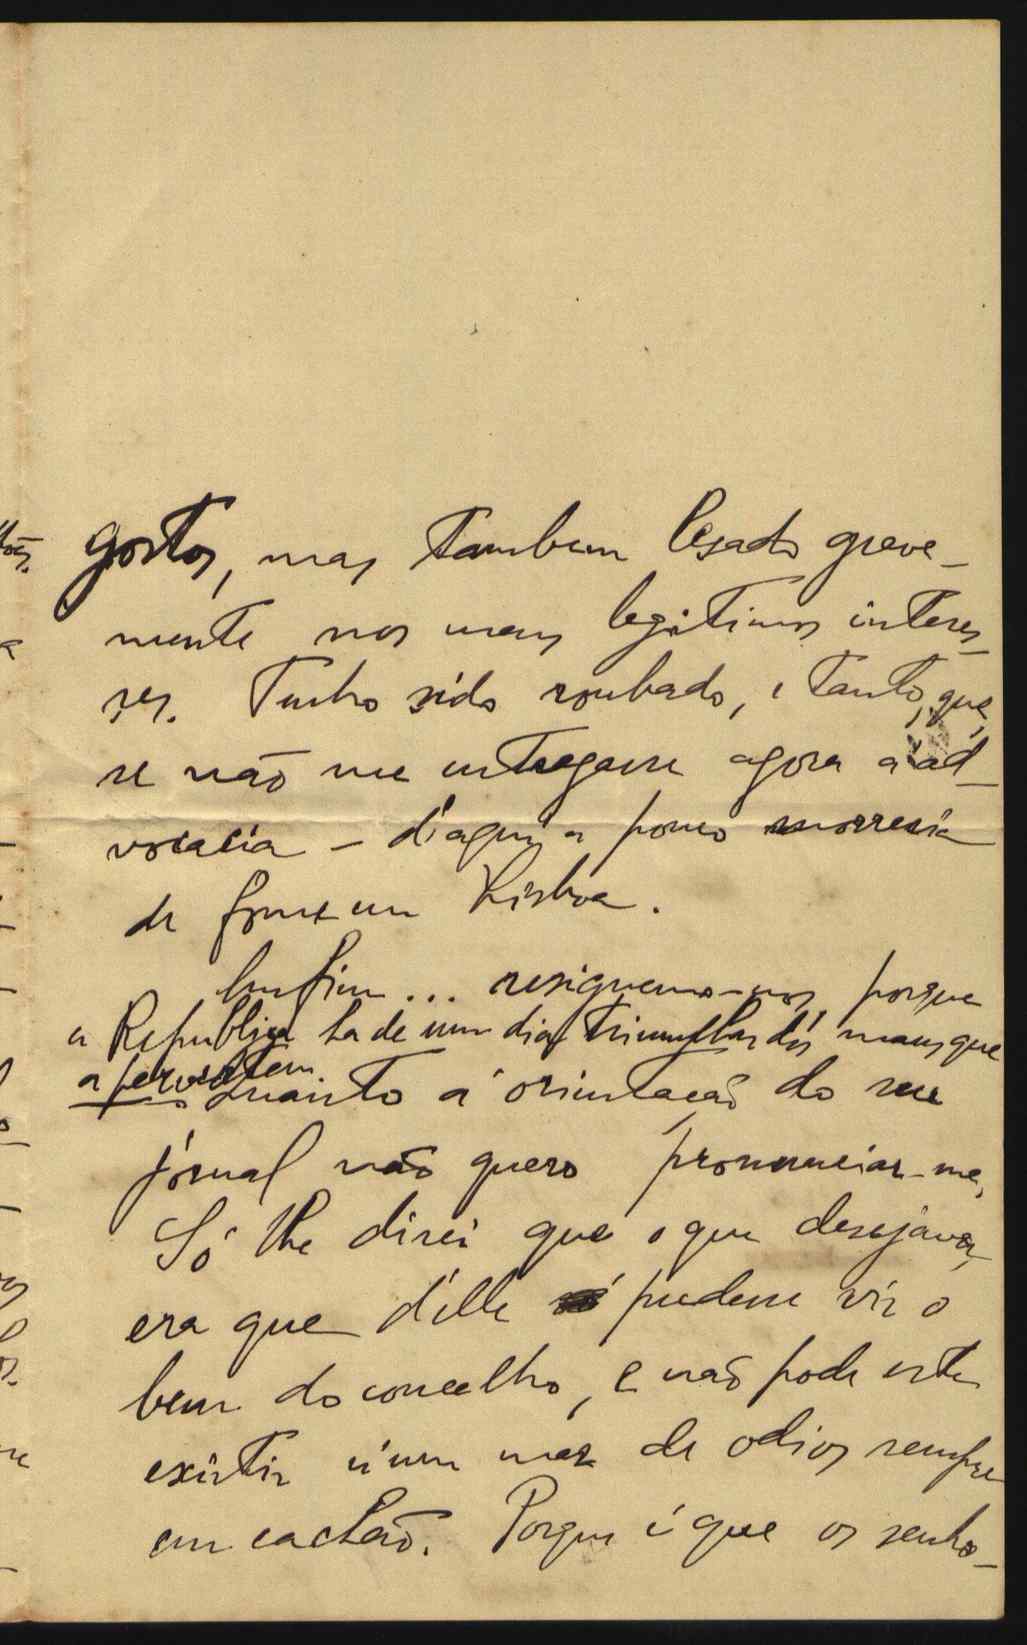 gostos, mas tambem lesado grave-
mente nos meus legitimos interes-
ses. Tenho sido roubado, e tanto, que,
se não me entregasse agora á ad-
vocacia – d'aqui a pouco morreria
de fome em Lisboa.
Emfim... resignemo-nos, porque
a Republica ha de um dia triumphar dos maus que
a pervertem
Quanto á orientação do seu
jornal não quero pronunciar-me,
Só lhe direi que o que desejava,
era que d'elle só pudesse vir o
bem do concelho, e não pode este
existir n'um mar de odios sempre
em cachão. Porque é que os senho-